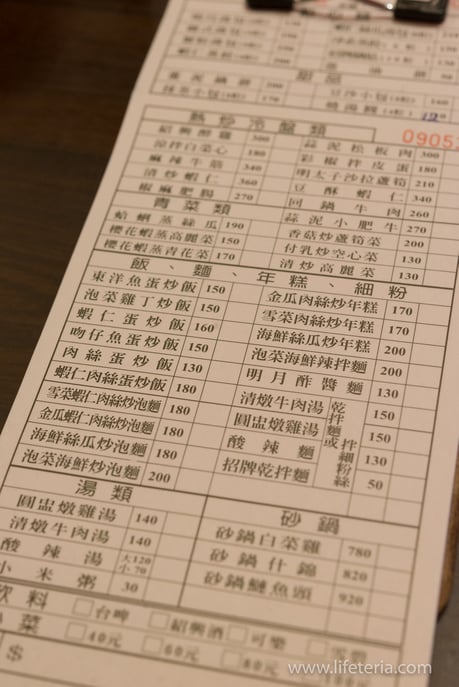 甜品
豆沙小包
200
170
160
12
0905
熱炒冷盤類
紹興醉雞 300
蒜泥松板肉 300
涼拌白菜心 180
彩椒拌皮蛋 180
麻辣牛筋 340
明太子沙拉蘆筍 210
清炒蝦仁 360
豆酥蝦仁 340
椒麻肥腸 270
回鍋牛肉 260
青菜類
蒜泥小肥牛 270
蛤蜊蒸絲瓜 190
香菇炒蘆筍菜 200
櫻花蝦蒸高麗菜 150
付乳炒空心菜 130
櫻花蝦蒸青花菜 170
清炒高麗菜 130
飯、麵、年糕、細粉
東洋魚蛋炒飯 150
金瓜肉絲炒年糕 170
泡菜雞丁炒飯 150
雪菜肉絲炒年糕 170
蝦仁蛋炒飯 160
海鮮絲瓜炒年糕 200
吻仔魚蛋炒飯 150
泡菜海鮮辣拌麵 200
肉絲蛋炒飯 130
明月酢醬麵 130
蝦仁肉絲蛋炒飯 180
清燉牛肉湯 150
雪菜蝦仁肉絲炒泡麵 180
圓盅燉雞湯 150
金瓜蝦仁肉絲炒泡麵 180
酸辣麵 130
海鮮絲瓜炒泡麵 180
招牌乾拌麵 50
泡菜海鮮炒泡麵 200
乾拌麵或
拌細粉絲
湯類
砂鍋
圓盅燉雞湯 140
砂鍋白菜雞 780
清燉牛肉湯 140
砂鍋什錦 820
酸辣湯 大120 小70
砂鍋鰱魚頭 920
小米粥 30
飲料 □台啤 □紹興酒 □可樂 □雪碧
菜 □40元 □60元 □80元
$
www.lifeteria.com